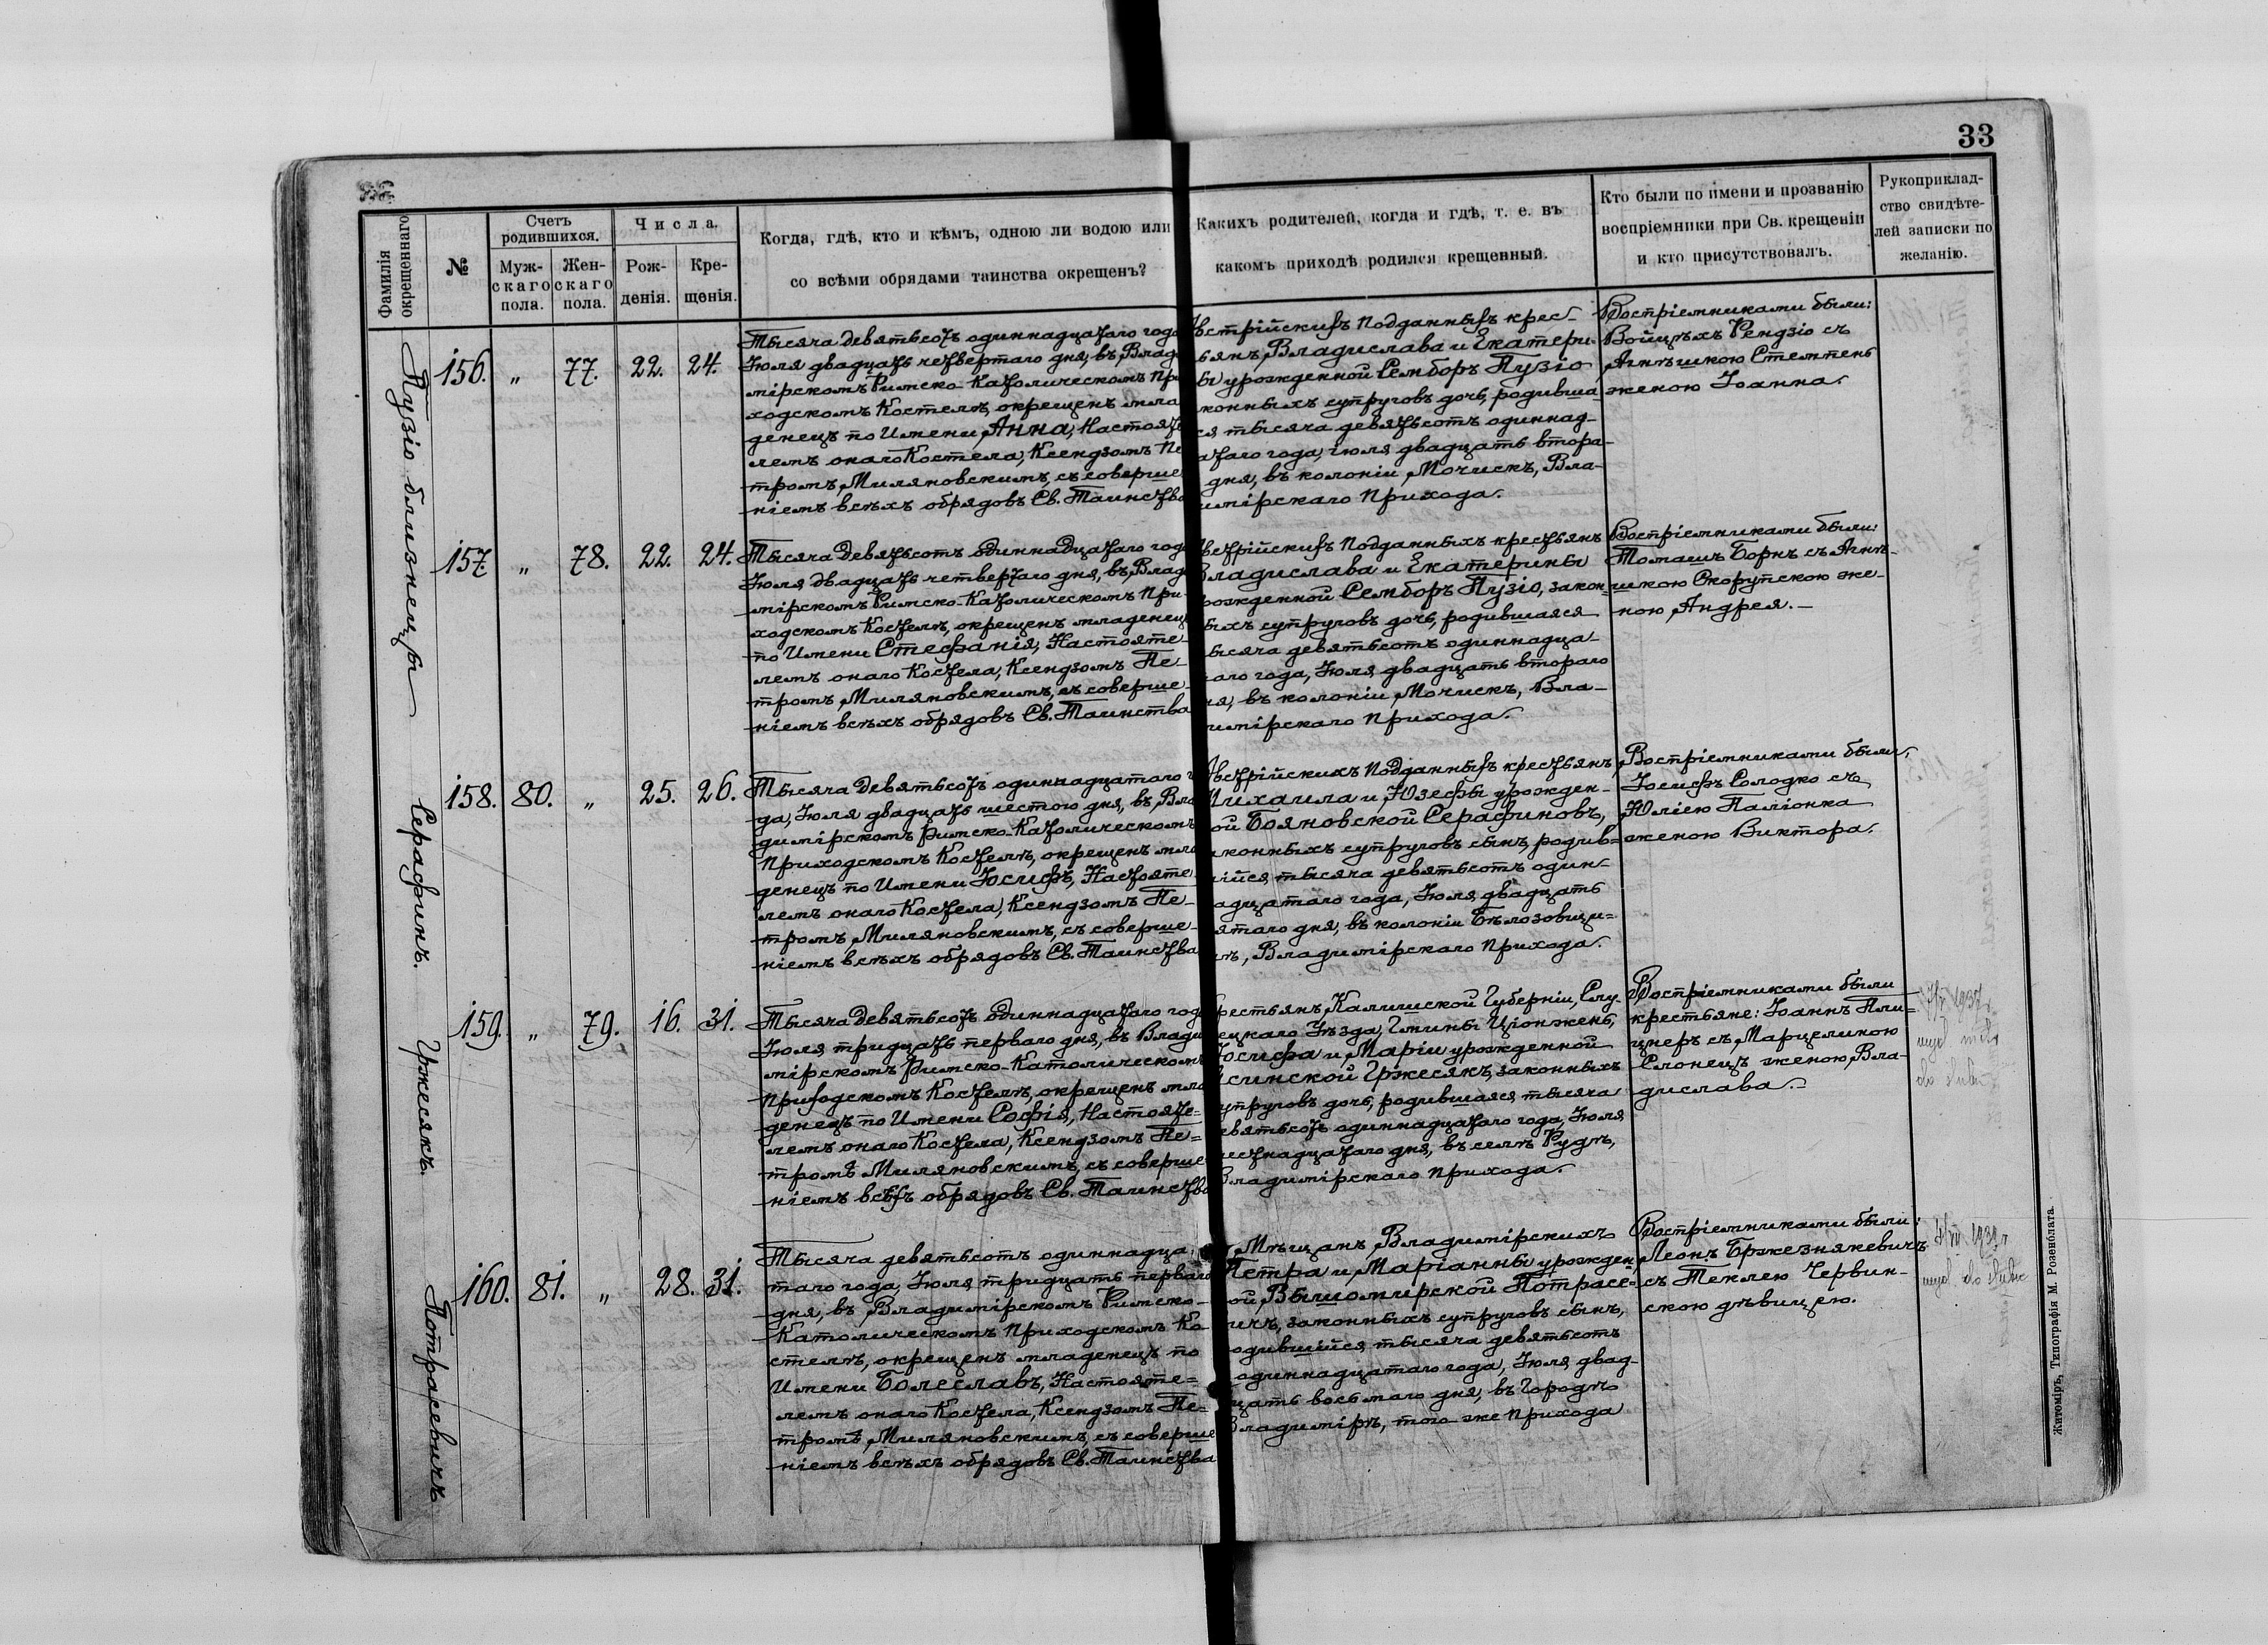 33
Фамилія окрещеннаго
№
Счетъ родившихся.
Муж-
скаго
пола.
Жен-
скаго
пола.
Числа.
Рож-
денія.
Кре-
щенія.
Когда, гдѣ, кто и кѣмъ, одною ли водою или
со всѣми обрядами таинства окрещенъ?
Какихъ родителей, когда и гдѣ, т. е. въ
какомъ приходѣ родился крещенный.
Кто были по имени и прозванію
воспріемники при Св. крещеніи
и кто присутствовалъ.
Рукоприклад-
ство свидѣте-
лей записки по
желанію.
Пузіо близнецы
156. „ 77. 22. 24.
Тысяча девятьсотъ одиннадцатаго года
Іюля двадцать четвертаго дня, въ Влад
мірскомъ Римско-Католическомъ При
ходскомъ Костелѣ, окрещенъ мла
денецъ по Имени Анна, Настояте
лемъ онаго Костела, Ксендзомъ Пе
тромъ Миляновскимъ, съ соверше
ніемъ всѣхъ обрядовъ Св. Таинства
встрійскихъ Подданныхъ крес-
ьянъ, Владислава и Екатери-
ы урожденной Семборъ Пузіо
конныхъ супруговъ дочь, родивша
ся тысяча девятьсотъ одиннад-
атаго года, іюля двадцать втора-
дня, въ колоніи Мочискъ, Вла-
имірскаго Прихода.
Воспріемниками были:
Войцѣхъ Рендзіо съ
Агнѣшкою Стемпень
женою Іоанна.
157 „ 78. 22. 24.
Тысяча девятьсотъ одиннадцатаго год
Іюля двадцать четвертаго дня, въ Влад
мірскомъ Римско-Католическомъ При-
ходскомъ Костелѣ, окрещенъ младенец
по Имени Стефанія, Настояте-
лемъ онаго Костела, Ксендзомъ Пе-
тромъ Миляновскимъ, съ соверше-
ніемъ всѣхъ обрядовъ Св. Таинства
встрійскихъ Подданныхъ крестьянъ
Владислава и Екатерины
рожденной Семборъ Пузіо, закон-
ыхъ супруговъ дочь, родившаяся
ысяча девятьсотъ одиннадца-
аго года, Іюля двадцать втораго
ня, въ колоніи Мочискъ, Вла-
имірскаго Прихода.
Воспріемниками были:
Томашъ Борнъ съ Агнѣ-
шкою Скорупскою же-
ною Андрея.-
Серафинъ.
158. 80. „ 25. 26.
Тысяча девятьсотъ одиннадцатаго г
да, Іюля двадцать шестого дня, въ Вла
димірскомъ Римско-Католическомъ
Приходскомъ Костелѣ, окрещенъ мла
денецъ по Имени Іосифъ, Настояте
лемъ онаго Костела, Ксендзомъ Пе-
тромъ Миляновскимъ, съ соверше-
ніемъ всѣхъ обрядовъ Св. Таинства
встрійскихъ Подданныхъ крестьянъ,
Михаила и Юзефы урожден-
ой Бояновской Серафиновъ,
конныхъ супруговъ сынъ, родив=
ійся, тысяча девятьсотъ один-
адцатаго года, Іюля, двадцать
ятаго дня, въ колоніи Бѣлозовщи=
ѣ, Владимірскаго Прихода.
Воспріемниками были,
Іосифъ Солодко съ
Юліею Паліонка
женою Виктора.
Гржесякъ.
159. „ 79. 16. 31.
Тысяча девятьсотъ одиннадцатаго год
Іюля, тридцать перваго дня, въ Влади
мірскомъ Римско-Католическом
Приходскомъ Костелѣ, окрещенъ мла
денецъ по Имени Софія, Настояте=
лемъ онаго Костела, Ксендзомъ Пе=
тромъ Миляновскимъ, съ соверше
ніемъ всѣхъ обрядовъ Св. Таинства
рестьянъ, Калишской Губерніи, Слу-
ецкаго Уѣзда, Гмины Ціонжень,
Іосифа и Маріи урожденной
синской Гржесякъ, законныхъ
упруговъ дочь, родившаяся, тысяча
евятьсотъ одиннадцатаго года, Іюля
естнадцатаго дня, въ селѣ Рудѣ,
Владимірскаго Прихода.
Воспріемниками были
крестьяне: Іоаннъ Пли=
цнеръ съ Марцелиною
Слонецъ женою, Вла-
дислава.-
1937
Потрасевичъ
160. 81. „ 28. 31.
Тысяча девятьсотъ одиннадца-
таго года, Іюля, тридцать перваго
дня, въ Владимірскомъ Римско-
Католическомъ Приходскомъ Ко-
стелѣ, окрещенъ младенецъ по
Имени Болеславъ, Настояте=
лемъ онаго Костела, Ксендзомъ Пе=
тромъ Миляновскимъ, съ соверше
ніемъ всѣхъ обрядовъ Св. Таинства
Мѣщанъ Владимірскихъ
Петра и Маріанны урожден,
ой Вышомирской Потрасе=
ичъ, законныхъ супруговъ сынъ,
одившійся, тысяча девятьсотъ
одиннадцатаго года, Іюля, двад-
цать восьмаго дня, въ Городѣ
Владимірѣ, того-же Прихода
Воспріемниками были:
Леонъ Бржезнякевичъ
съ Теклею Червин-
скою дѣвицею.
Житоміръ, Типографія М. Розенблата.